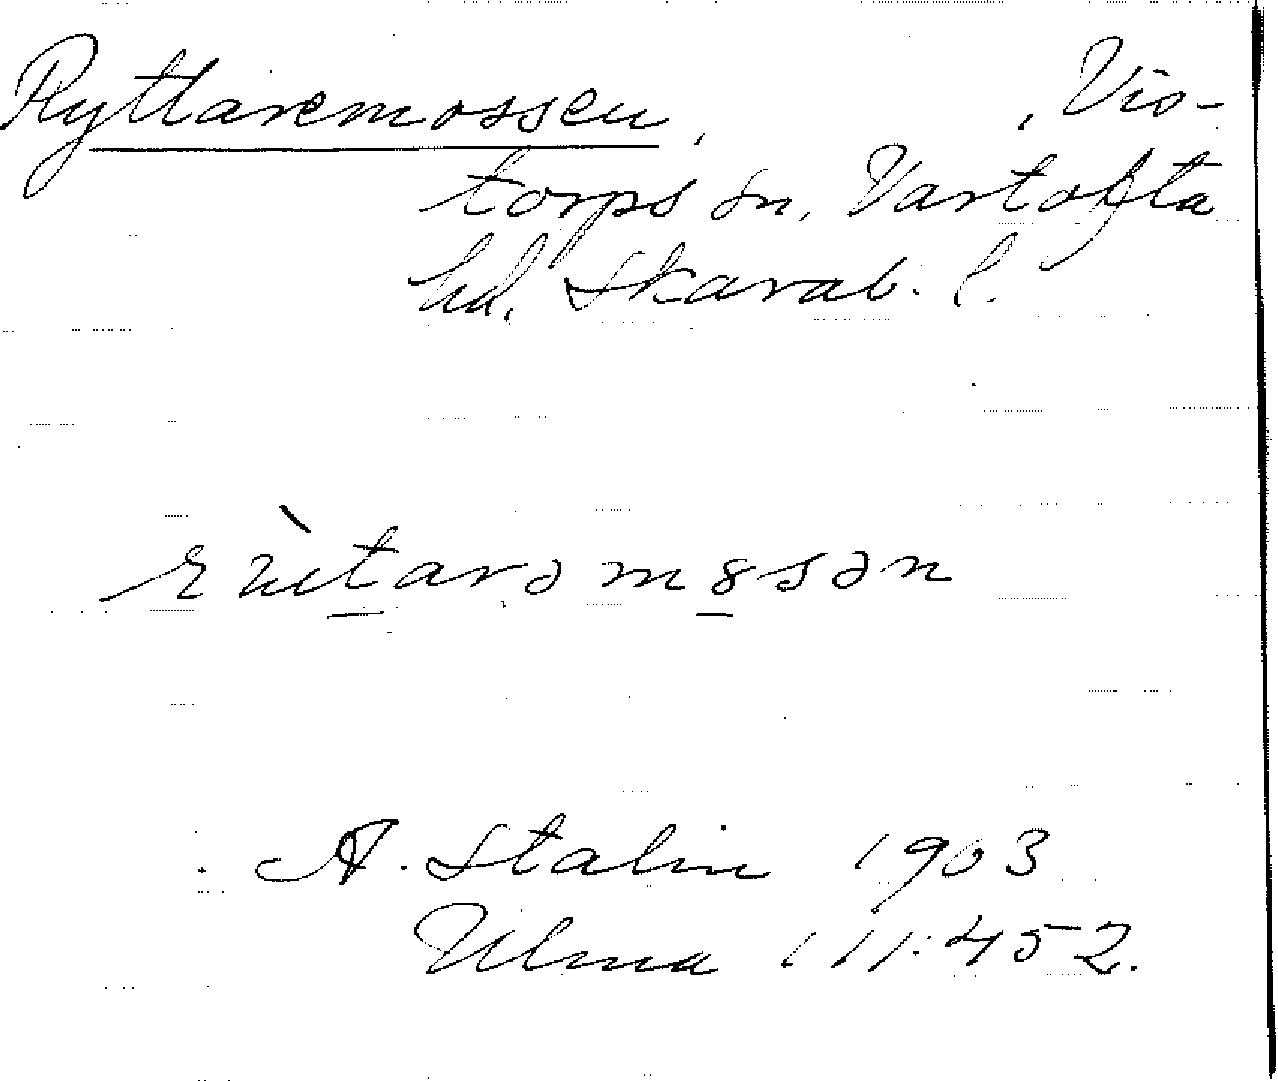 Ryttaremossen, , Vis-
torps sn, Vartofta
hd. Skarab. l.
rùtarəmɞsən
A. Stalin 1903
Ulma 111:452.